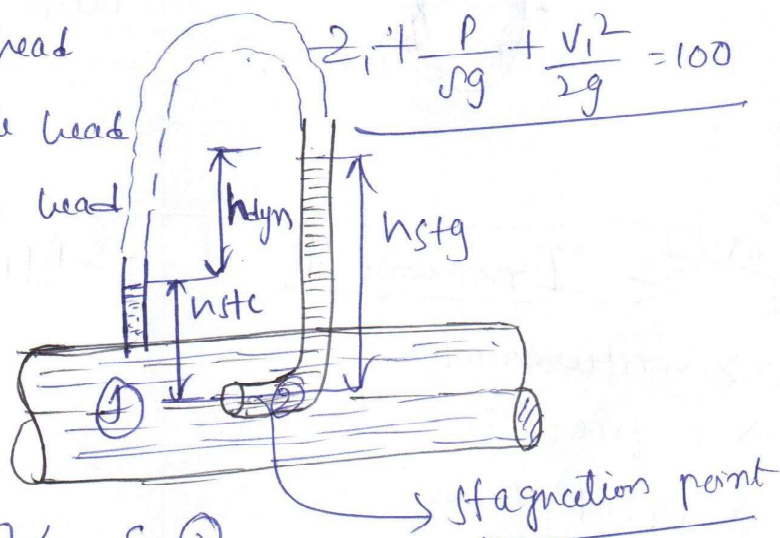 head
Z₁ + P/ρg + V₁²/2g = 100
head
head
hdyn
hstg
hstc
1
2
stagnation point